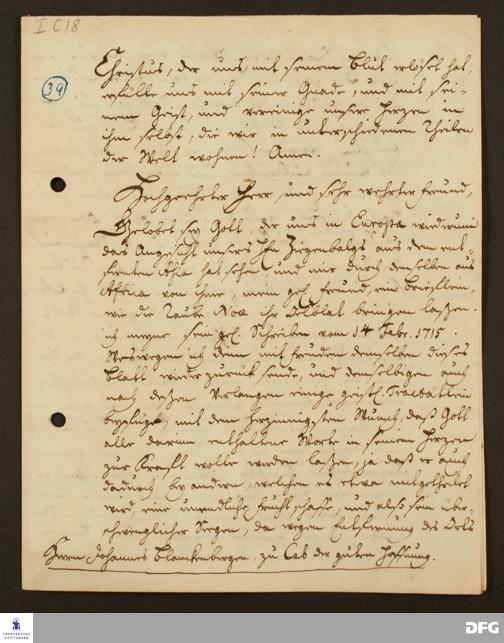 I C 18
39
Christus, der uns mit seinem Blut erlöset hat,
erfülle uns mit seiner Gnade, und mit sei-
nem Geist, und vereinige unsere Herzen in
ihm selbst, die wir in unterschiedenen Theilen
der Welt wohnen! Amen.
Hochgeehrter Herr, und sehr wehrter Freund,
Gelobet sey Gott, der uns in Europa wiederum
das Angesicht unsers Hn Ziegenbalgs aus dem ent-
fernten Asia hat sehen, und mir durch denselben aus
Africa von ihme, mein geh. Freund, ein Brieflein,
wie die Taube Noae ihr Oelblat bringen laßen.
ich meyne sein gel. Schreiben vom 14 Febr. 1715.
Weswegen ich denn mit Freuden demselben dieses
Blatt wieder zurück sende, und demselbigen auch
nach deßen Verlangen einige geistl. Tractätlein
beyfüge, mit dem herzinnigsten Wunsch, daß Gott
alle darinn enthaltene Worte in seinem Herzen
zur Krafft wolle werden laßen, ja daß er auch
dadurch bey andern, welchen es etwa mitgetheilet
wird, eine unendliche Frucht schaffe, und also sein über-
schwenglicher Seegen, da wegen Entfernung des Orts
Herrn Johannes Blankenbergen, zu Cab der guten Hoffnung.
FRANCKESCHE
STIFTUNGEN
DFG